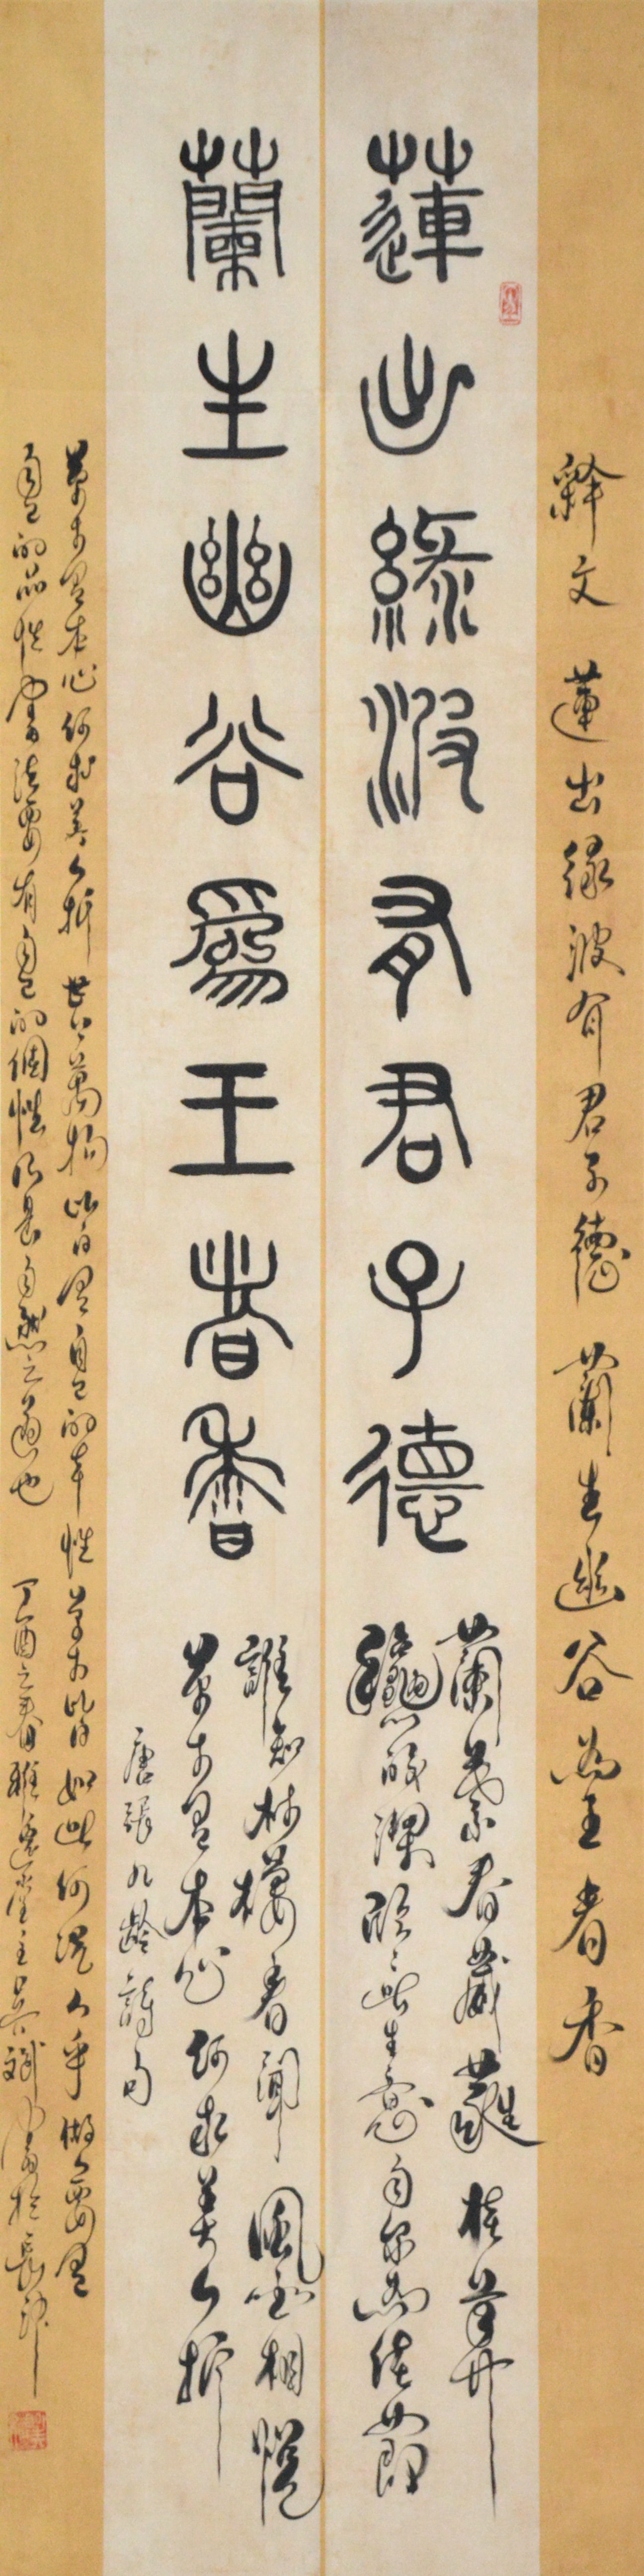 釋文 蓮出緑波有君子德 蘭生幽谷為王者香
蓮出緑波有君子德
蘭葉春葳蕤桂華
龝皎潔欣欣此生意自尔為佳節
蘭生幽谷爲王者香
誰知林棲者聞風坐相悅
草木有本心何求美人折
唐張九齡詩句
草木有本心何求美人折 世上萬物皆有自己的本性草木皆如此何況人乎做人要有
自己的品性書法要有自己的個性乃是自然之道也 丁酉之春雅逸堂主